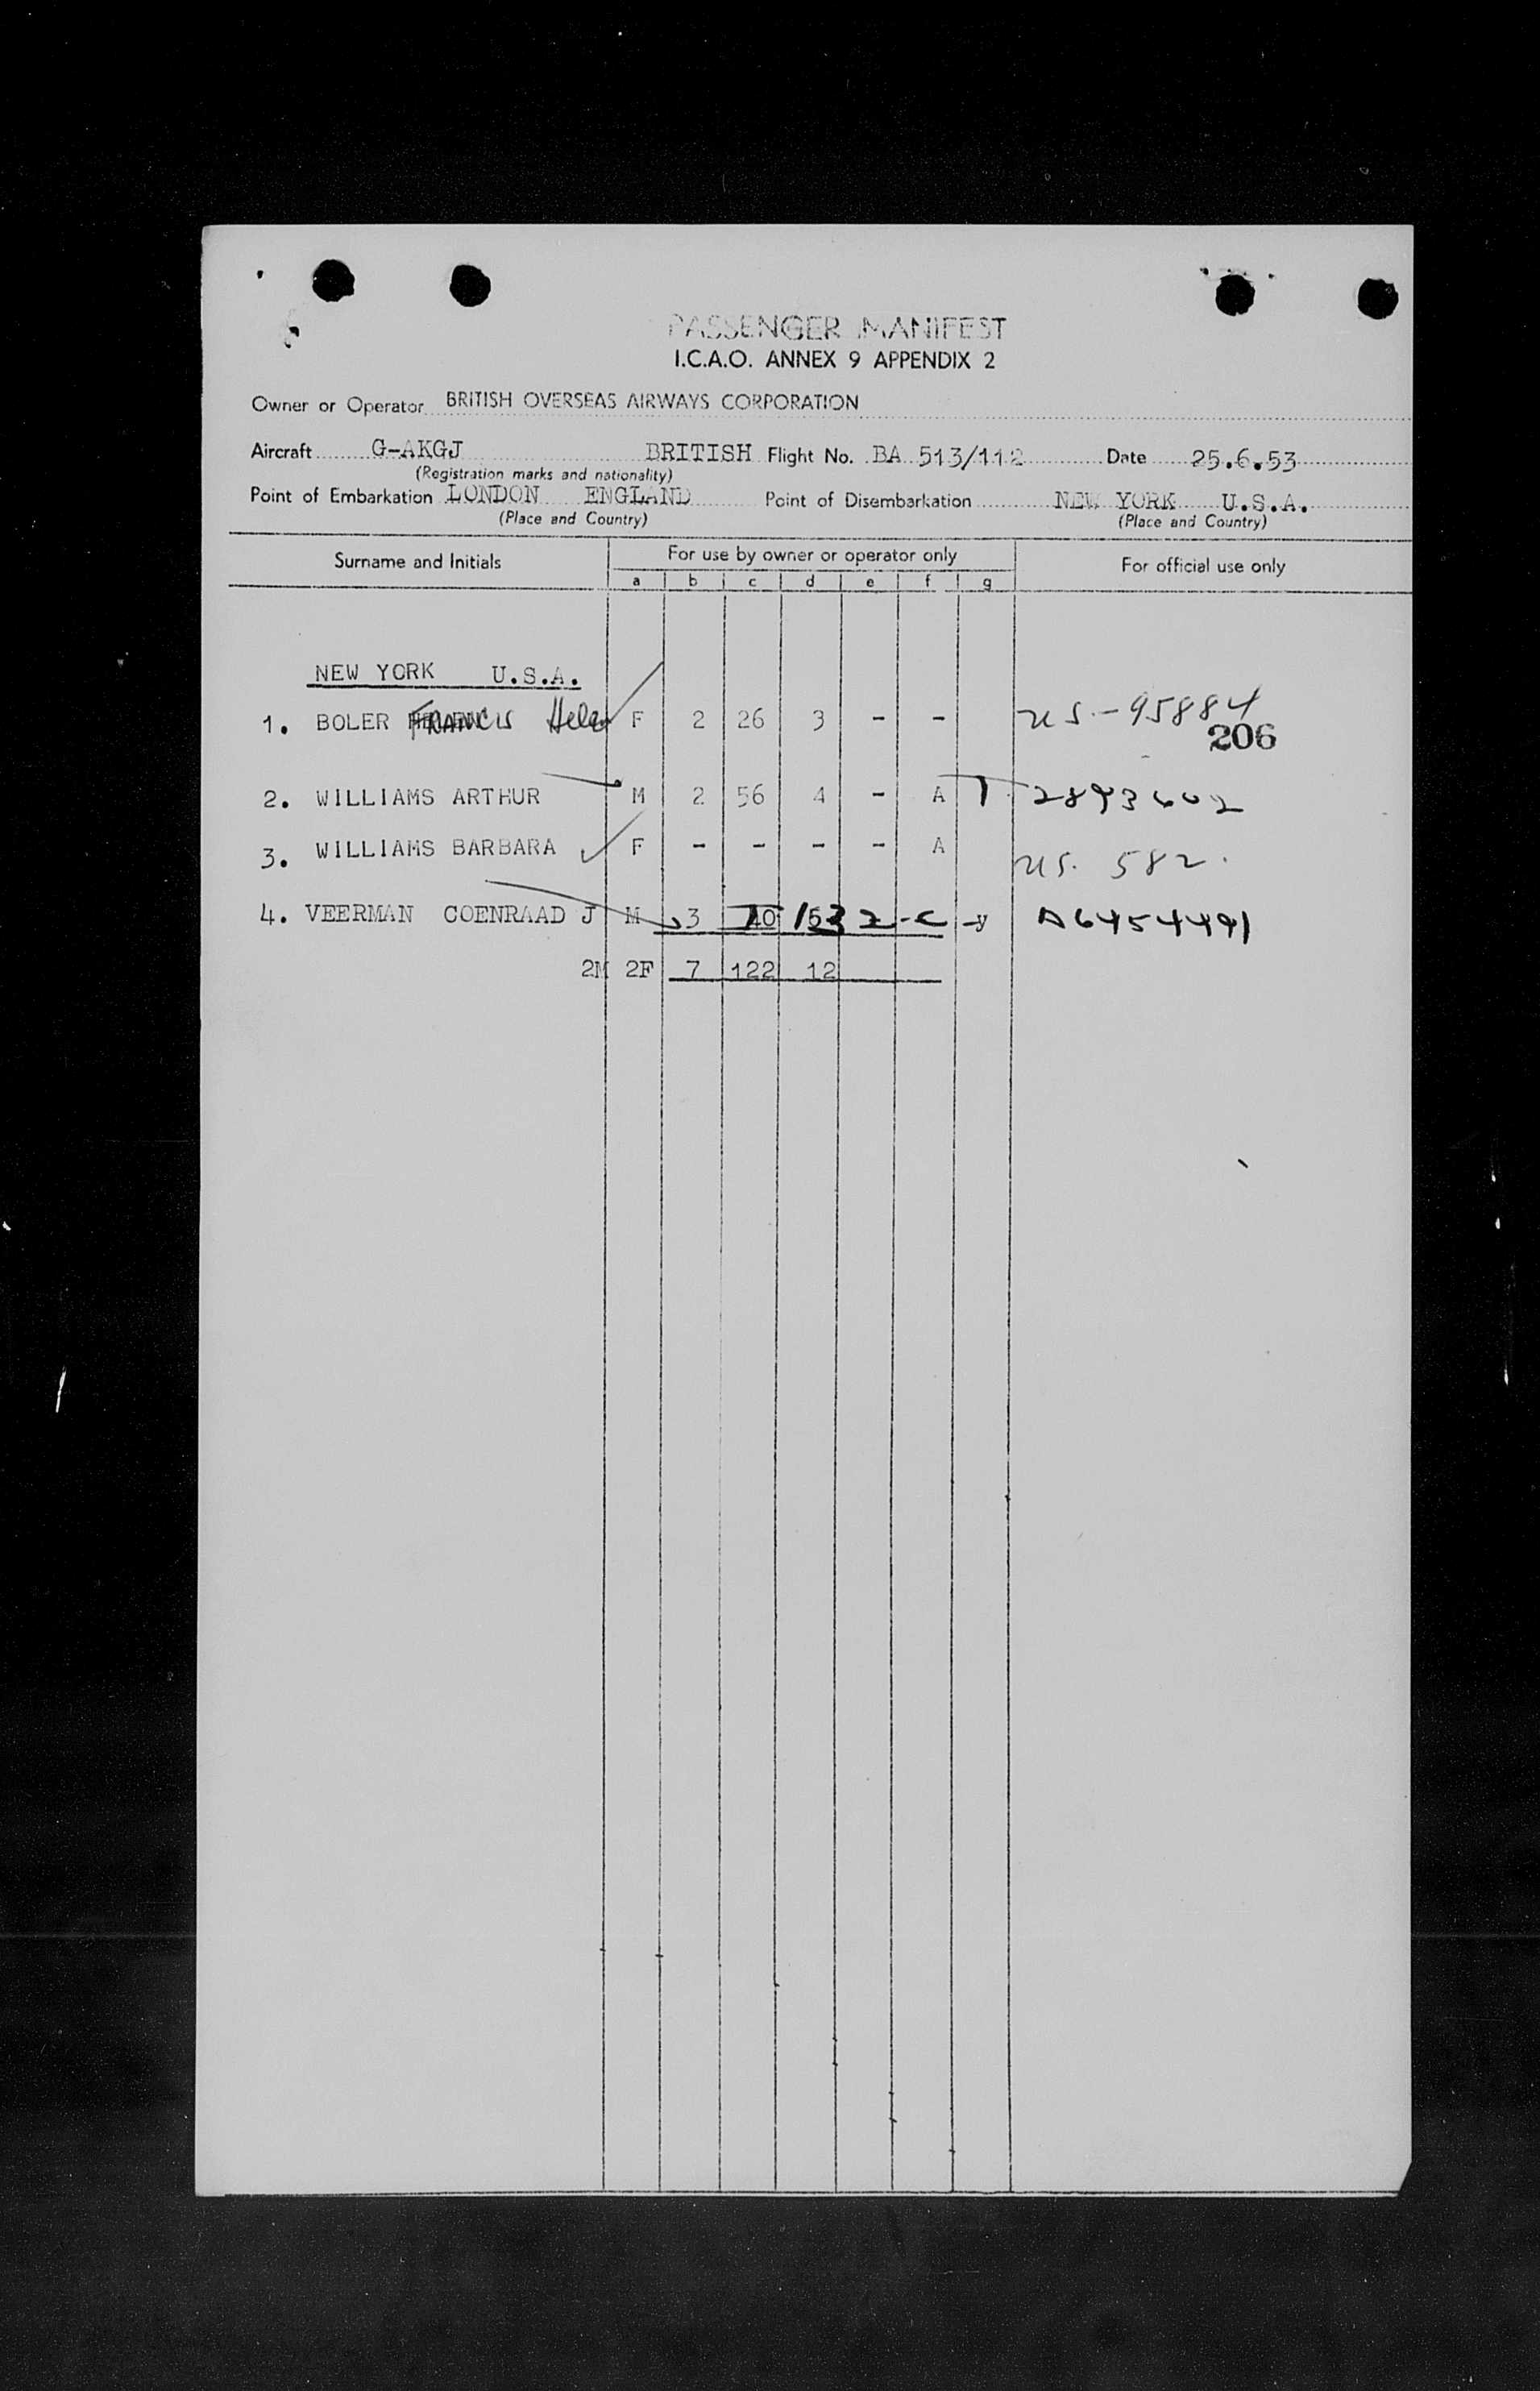 PASSENGER MANIFEST
I.C.A.O. ANNEX 9 APPENDIX 2
Owner or Operator BRITISH OVERSEAS AIRWAYS CORPORATION
Aircraft G-AKGJ BRITISH Flight No. BA 513/112 Date 25.6.53
(Registration marks and nationality)
Point of Embarkation LONDON ENGLAND Point of Disembarkation NEW YORK U.S.A.
(Place and Country) (Place and Country)
Surname and Initials For use by owner or operator only For official use only
a b c d e f g
NEW YORK U.S.A.
1. BOLER FRANCIS Helen F 2 26 3 - - US-95884
206
2. WILLIAMS ARTHUR M 2 56 4 - A
3. WILLIAMS BARBARA F - - - - A US. 582.
4. VEERMAN COENRAAD J M 3 40 A6454491
2M 2F 7 122 12